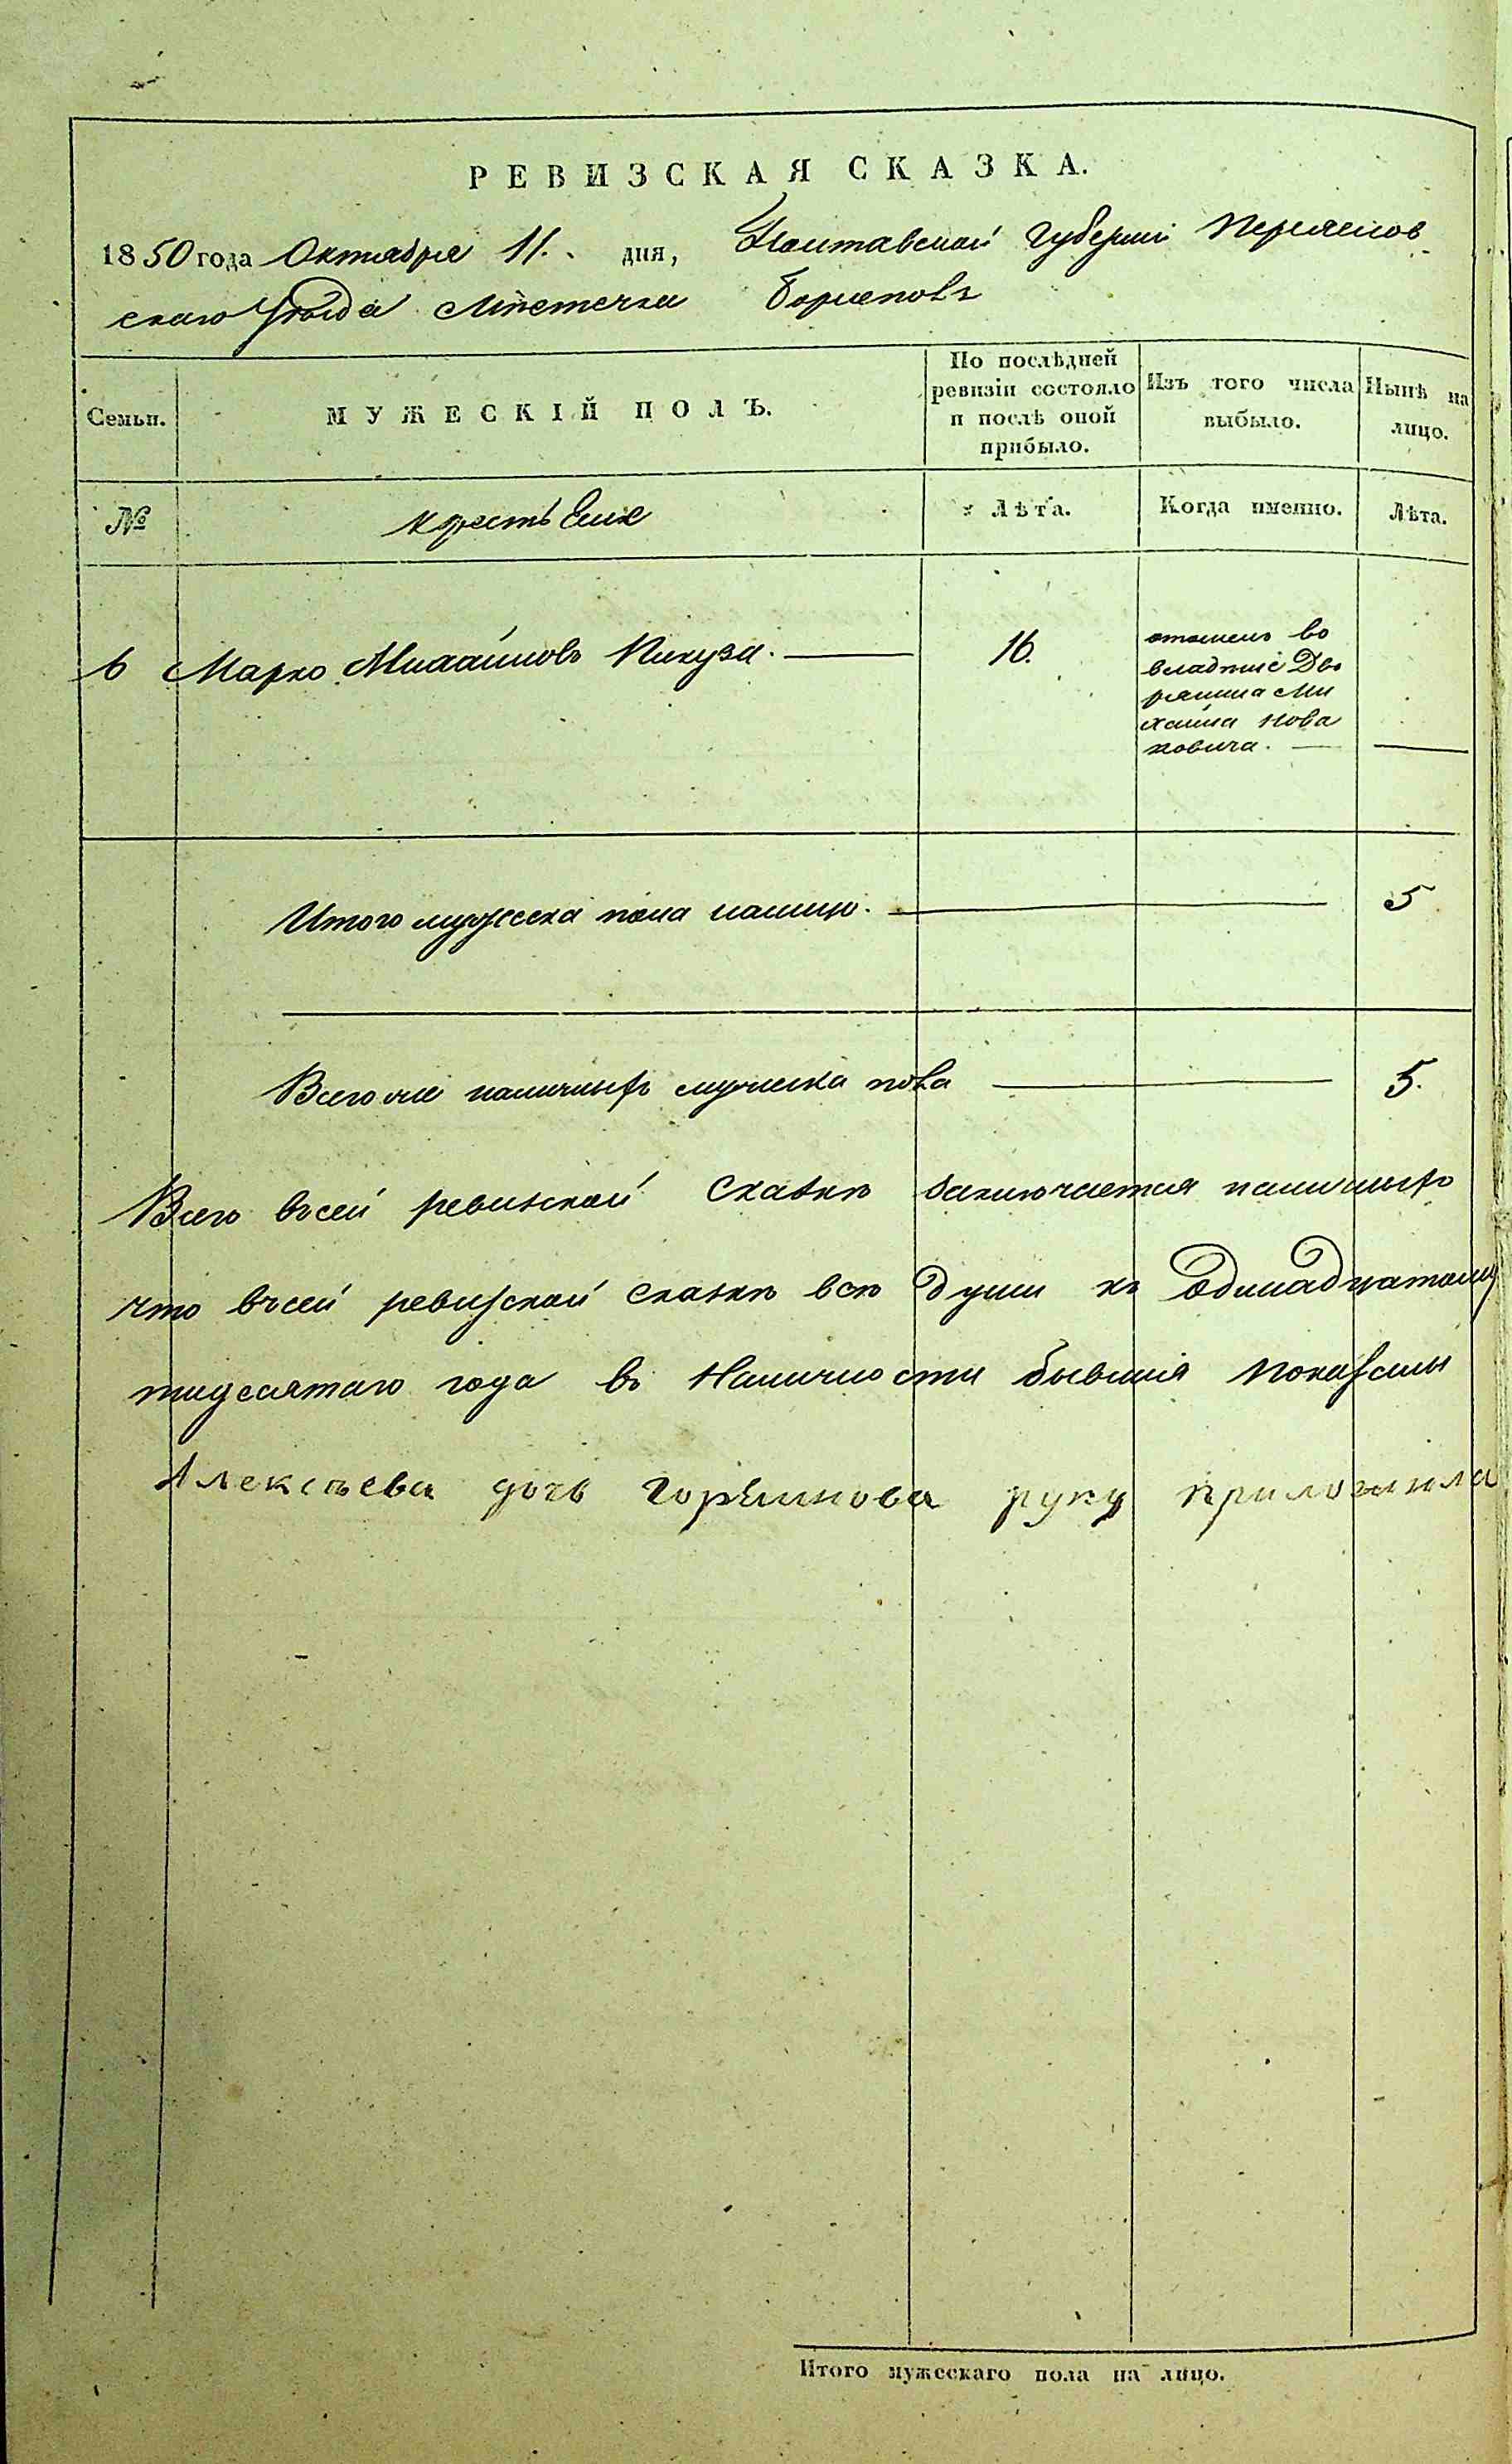 РЕВИЗСКАЯ СКАЗКА.
1850 года Октября 11. дня, Полтавской Губернiи Переяслов
скаго Уѣзда Мѣстечка Борисполѣ
Семьи.
МУЖЕСКІЙ ПОЛЪ.
По послѣдней
ревизіи состояло
и послѣ оной
прибыло.
Изъ того числа
выбыло.
Нынѣ на
лицо.
№
крестьяне
Лѣта.
Когда именно.
Лѣта.
6 Марко Михайловъ Пикуза.
16.
отошелъ во
владѣніе Дво
рянина Ми
хаила Нова
ковича.
Итого мужеска пола налицо.
5
Всего же наличныхъ мужеска пола
5.
Всего въсей ревизской Сказкѣ заключается наличныхъ
что въсей ревизской сказкѣ всѣ души къ Одинадцатому
тидесятаго года въ Наличности бывшія показаны
Алексѣева дочь Горяинова руку приложила
Итого мужескаго пола на лицо.